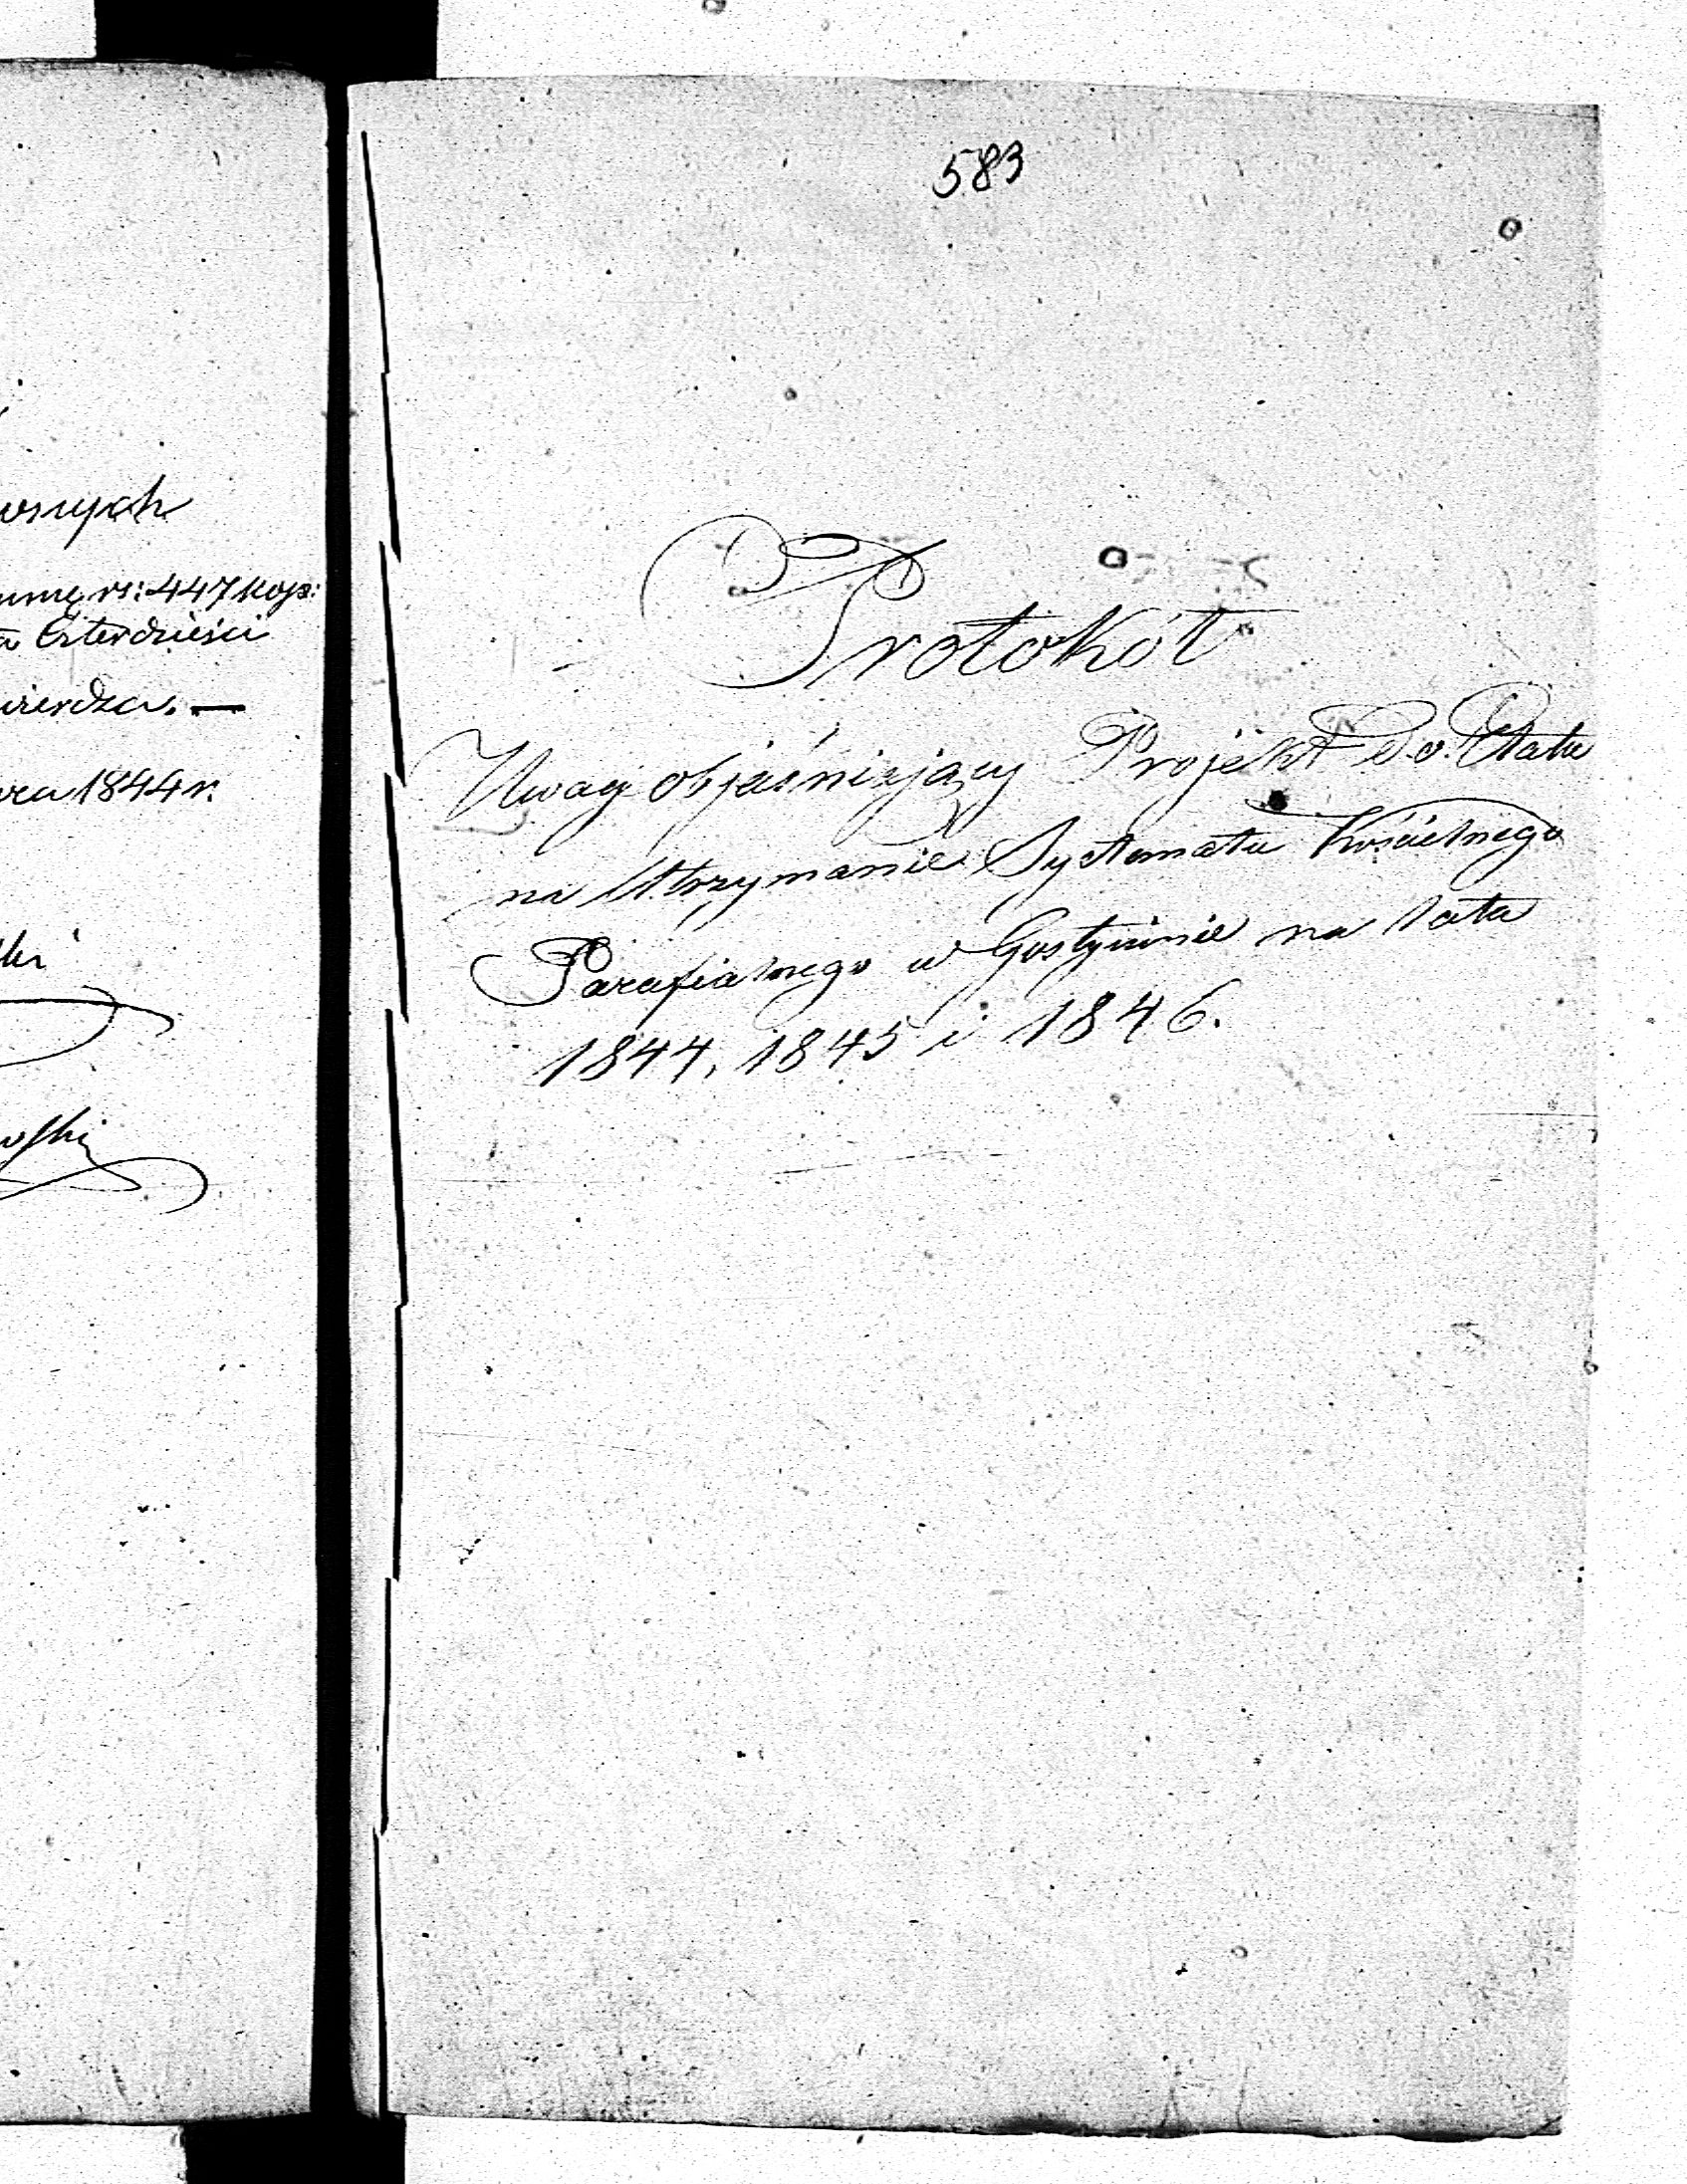 583
umę rs: 447 kop:
Czterdzieści
wierdza. —
1844 r.
Protokół
Uwag objaśniający Projekt do Etatu
na Utrzymanie Systematu Kościelnego
Parafialnego w Gostyninie na lata
1844, 1845 i 1846.